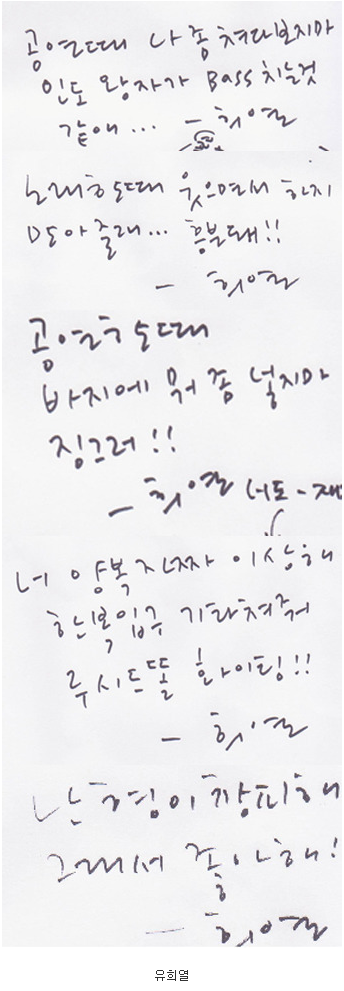 공연때 나 좀 쳐다보지마
인도 왕자가 Bass 치는것
같애... - 희열
노래할때 웃으면서 하지
말아줄래... 흥분돼!!
- 희열
공연할때
바지에 뭐 좀 넣지마
징그러!!
- 희열 너도 - 재
네 양복 진짜 이상해
한복입구 기타쳐줘
루시드폴 화이팅!!
- 희열
난 형이 창피해
그래서 좋아해!
- 희열
유희열